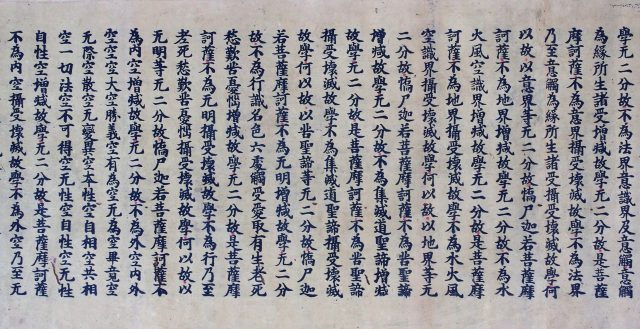 學无二分故不為法界意識界及意觸意觸
為緣所生諸受增減故學无二分故是菩薩
摩訶薩不為意界攝受壞滅故學不為法界
乃至意觸為緣所生諸受攝受壞滅故學何
以故以意界等无二分故憍尸迦若菩薩摩
訶薩不為地界增減故學无二分故不為水
火風空識界增減故學无二分故是菩薩摩
訶薩不為地界攝受壞滅故學不為水火風
空識界攝受壞滅故學何以故以地界等无
二分故憍尸迦若菩薩摩訶薩不為苦聖諦
增減故學无二分故不為集滅道聖諦增減
故學无二分故是菩薩摩訶薩不為苦聖諦
攝受壞滅故學不為集滅道聖諦攝受壞滅
故學何以故以苦聖諦等无二分故憍尸迦
若菩薩摩訶薩不為无明增減故學无二分
故不為行識名色六處觸受愛取有生老死
愁歎苦憂惱增減故學无二分故是菩薩摩
訶薩不為无明攝受壞滅故學不為行乃至
老死愁歎苦憂惱攝受壞滅故學何以故以
无明等无二分故憍尸迦若菩薩摩訶薩不
為內空增減故學无二分故不為外空內外
空空空大空勝義空有為空无為空畢竟空
无際空散空无變異空本性空自相空共相
空一切法空不可得空无性空自性空无性
自性空增減故學无二分故是菩薩摩訶薩
不為內空攝受壞滅故學不為外空乃至